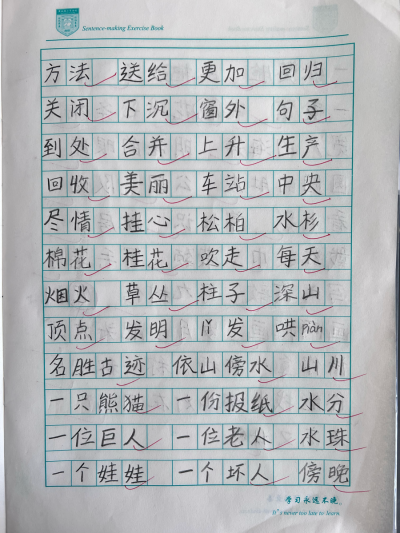 Sentence-making Exercise Book
方法 送给 更加 回归
关闭 下沉 窗外 句子
到处 合并 上升 生产
回收 美丽 车站 中央
尽情 挂心 松柏 水杉
棉花 桂花 吹走 每天
烟火 草丛 柱子 深山
顶点 发明 lǐ发 哄piàn
名胜古迹 依山傍水 山川
一只熊猫 一份报纸 水分
一位巨人 一位老人 水珠
一个娃娃 一个坏人 傍晚
学习永远不晚。
It's never too late to learn.